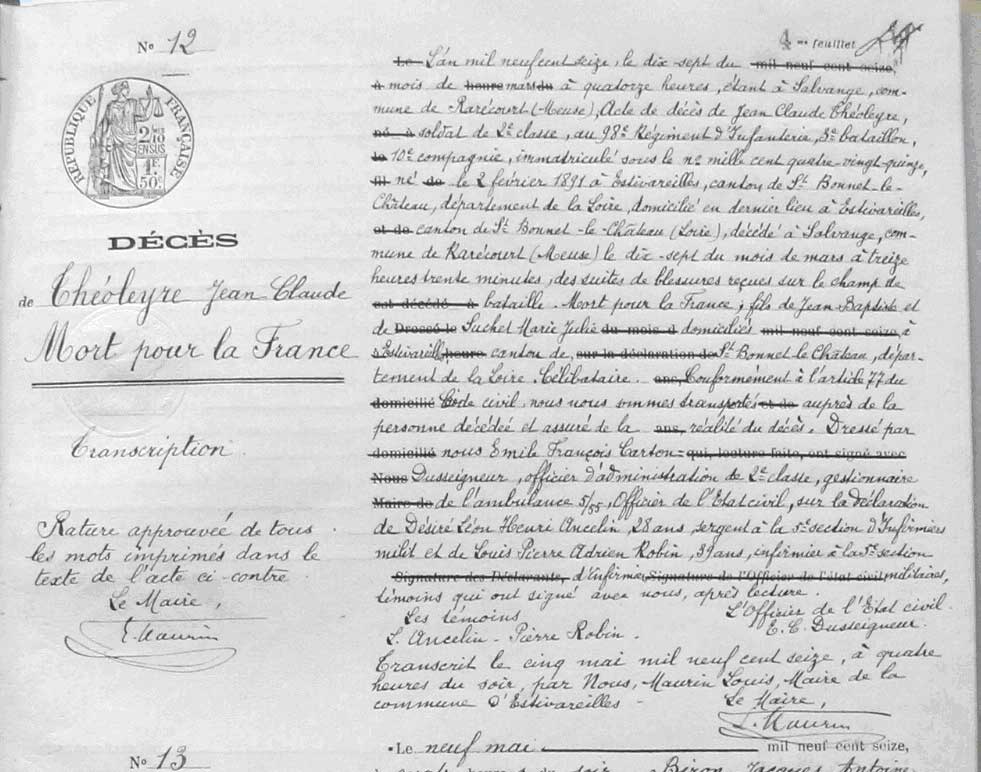 No 12
4 me feuillet
RÉPUBLIQUE FRANÇAISE
2/10 EN SUS
1 F. 50 C.
DÉCÈS
de Théoleyre Jean Claude
Mort pour la France
Transcription
Rature approuvée de tous
les mots imprimés dans le
texte de l'acte ci-contre
Le Maire,
L. Maurin
Le L'an mil neuf cent seize, le dix-sept du mil neuf cent seize,
à mois de heure mars du à quatorze heures, étant à Salvange, com-
mune de Rarécourt (Meuse), Acte de décès de Jean Claude Théoleyre,
né à soldat de 2e classe, au 98e Régiment d'Infanterie, 3e bataillon,
le 10e compagnie, immatriculé sous le no mille cent quatre-vingt-quinze,
fil né de le 2 février 1891 à Estivareilles, canton de St Bonnet-le-
Château, département de la Loire, domicilié en dernier lieu à Estivareilles,
et de canton de St Bonnet-le-Château (Loire), décédé à Salvange, com-
mune de Rarécourt (Meuse) le dix-sept du mois de mars à treize
heures trente minutes, des suites de blessures reçues sur le champ de
est décédé à bataille. Mort pour la France; fils de Jean Baptiste et
de Dressé le Suchet Marie Julie du mois d domiciliés mil neuf cent seize à
Estivareilles, heure canton de, sur la déclaration de St Bonnet-le-Château, dépar-
tement de la Loire. Célibataire. ans, Conformément à l'article 77 du
domicilié Code civil, nous nous sommes transportés et de auprès de la
personne décédée et assuré de la ans, réalité du décès. Dressé par
domicilié nous Emile François Carton- qui, lecture faite, ont signé avec
Nous Dusseigneur, officier d'administration de 2e classe, gestionnaire
Maire de de l'ambulance 5/55, Officier de l'Etat civil, sur la déclaration
de Désiré Léon Henri Ancelin, 28 ans, sergent à la 5e section d'Infirmiers
milit et de Louis Pierre Adrien Robin, 39 ans, infirmier à la 5e section
Signature des Déclarants, d'Infirmiers Signature de l'Officier de l'état civil militaires,
témoins qui ont signé avec nous, après lecture.
Les témoins
L'Officier de l'Etat civil.
L. Ancelin - Pierre Robin.
E. C. Dusseigneur.
Transcrit le cinq mai mil neuf cent seize, à quatre
heures du soir, par Nous, Maurin Louis, Maire de la
commune d'Estivareilles -
Le Maire,
L. Maurin
No 13
Le neuf mai mil neuf cent seize,
à quatre heures du soir Biron, Jacques Antoine